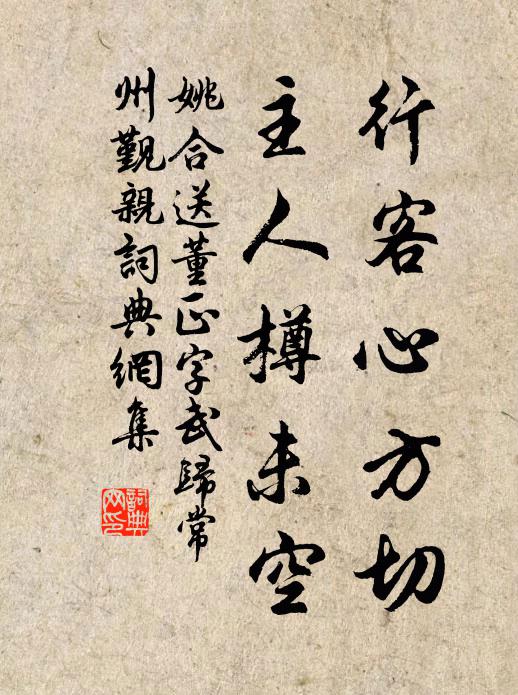 行客心方切
主人樽未空
姚合送董正字武歸常
州觀親詞典網集
詞典
网印